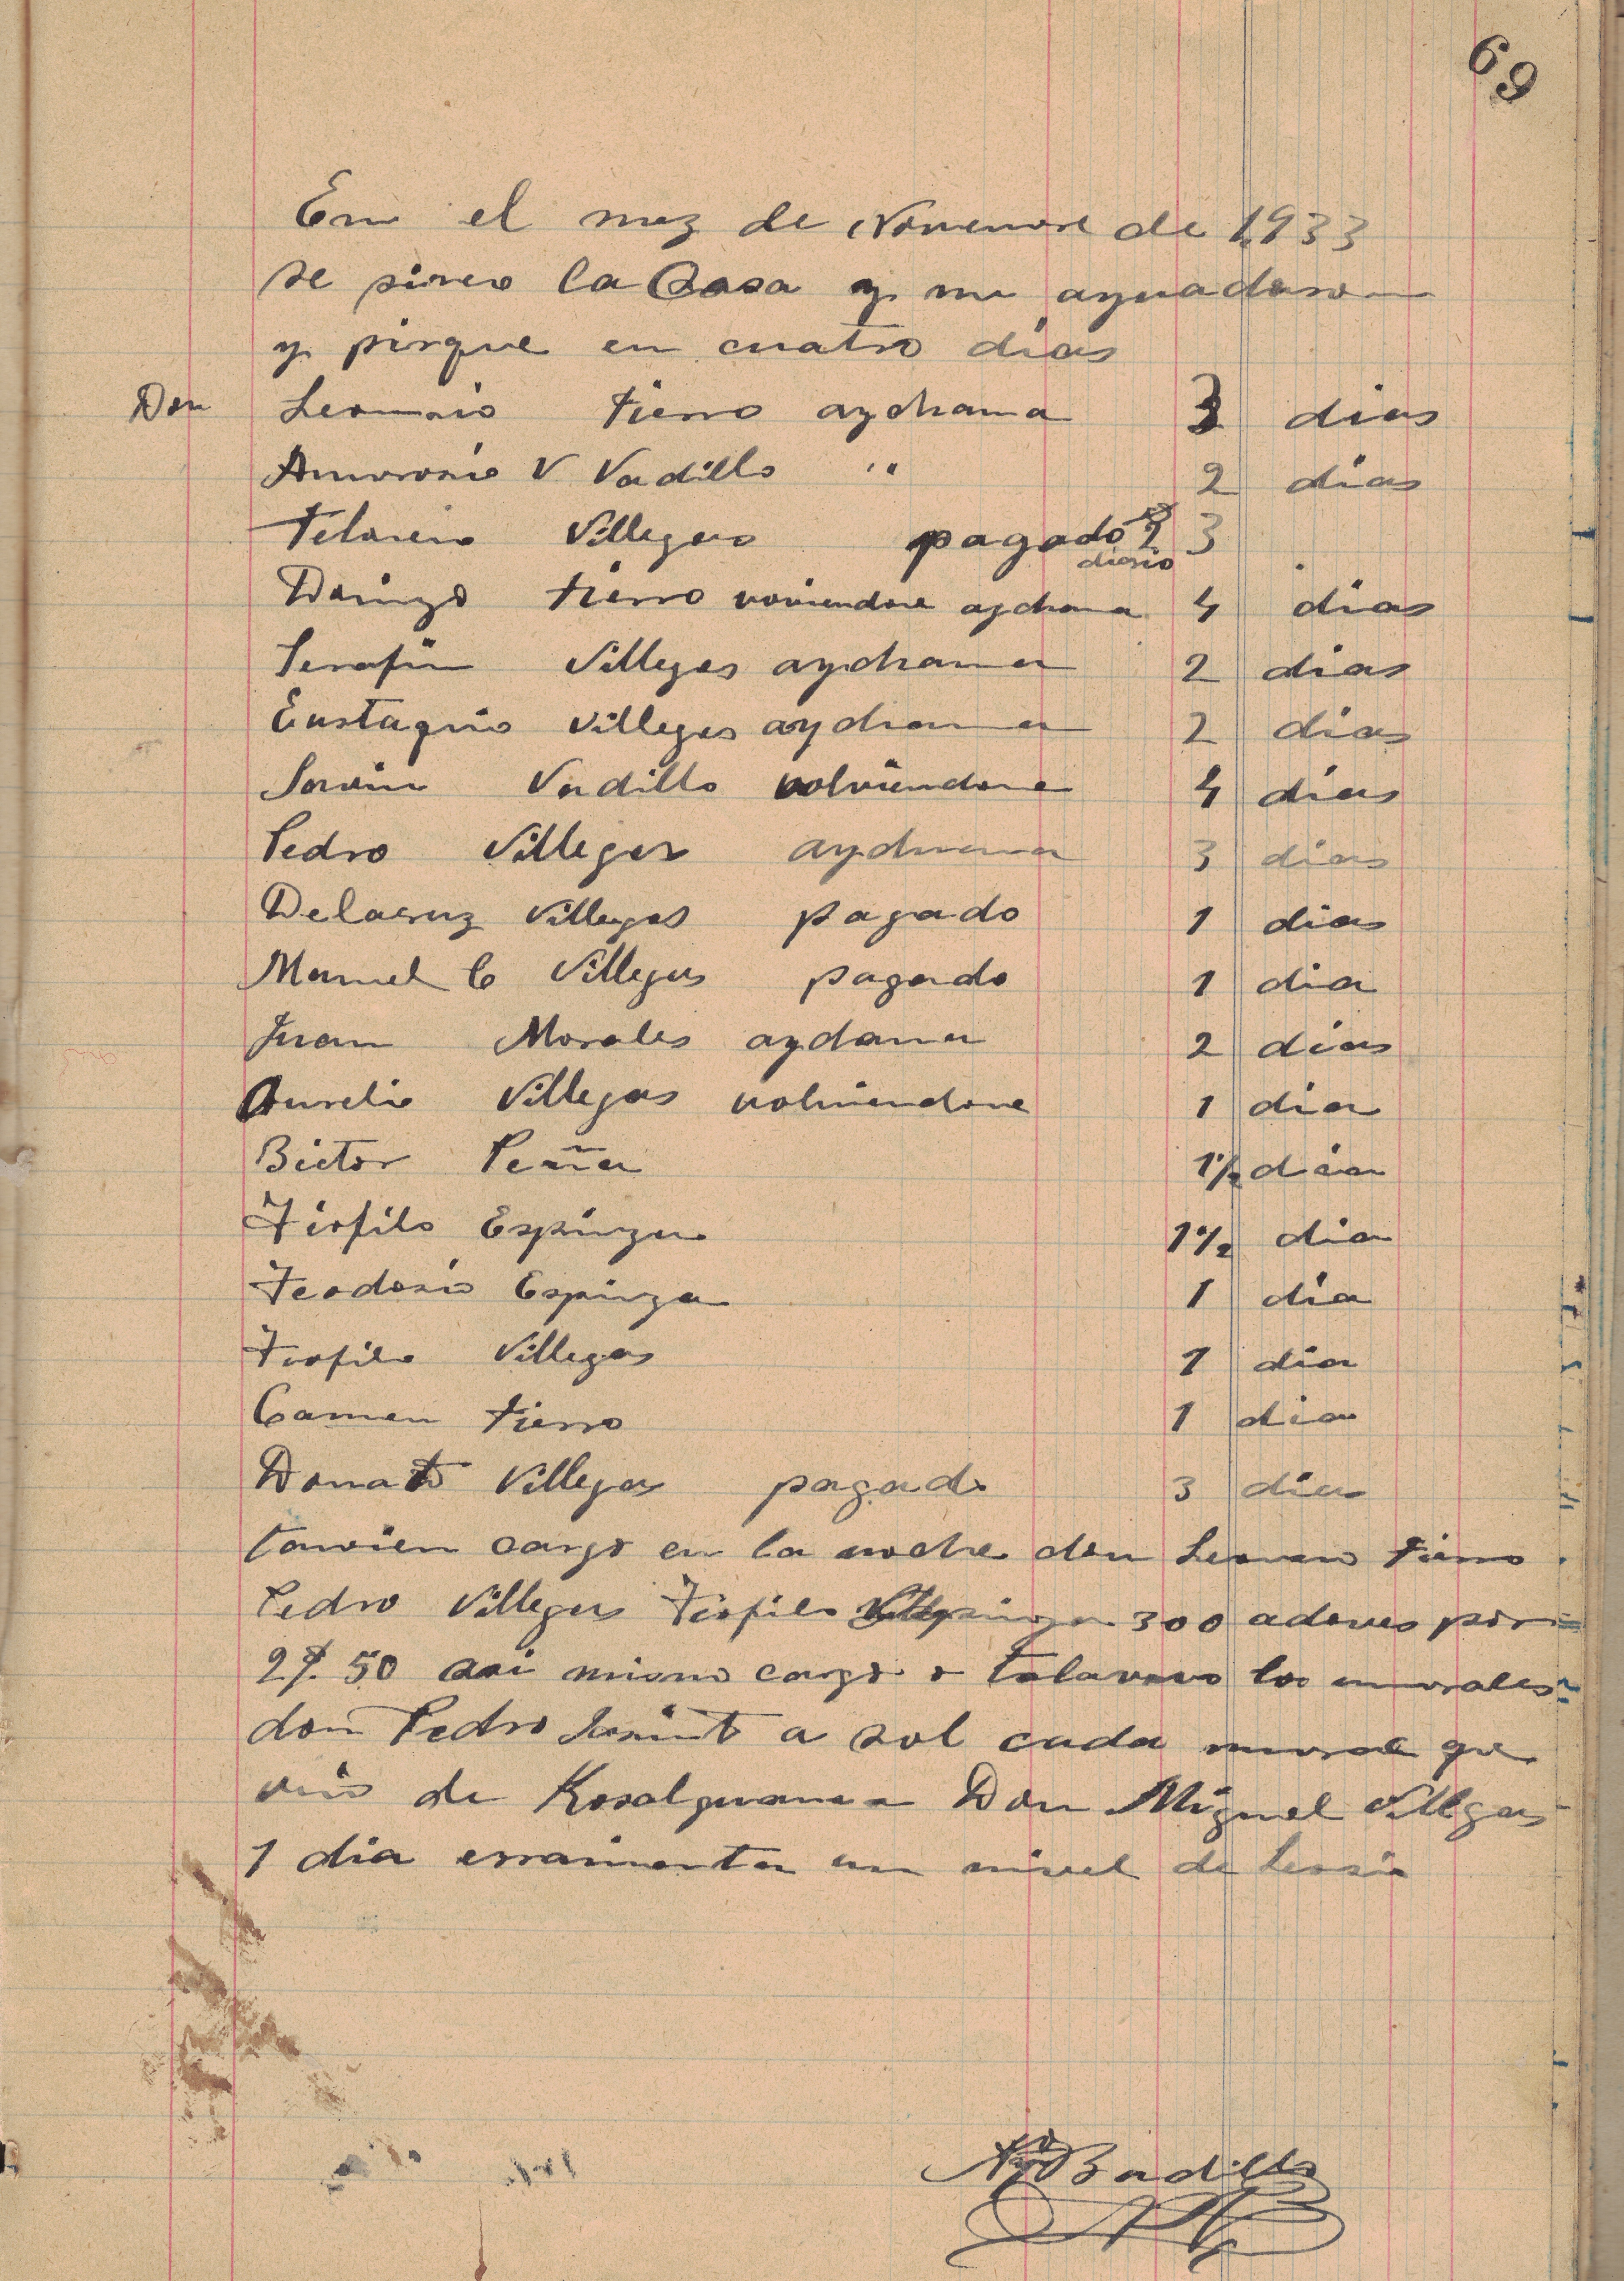 69
En el mez de Novienvre de 1933
se pirco la Casa y me ayudaron
y pirque en cuatro dias
Don Leoncio Fierro aychama 3 dias
Amvrosio V Vadillo " 2 dias
Telasero Villegas pagado diario 3
Daringo Fierro volviendose aychama 4 dias
Serafin Villegas aychama 2 dias
Eustaquio Villegas aychama 2 dias
Savin Vadillo volviendose 4 dias
Pedro Villegas aychama 3 dias
Delacruz Villegas pagado 1 dias
Manuel C Villegas pagado 1 dia
Juan Morales aydama 2 dias
Aurelio Villegas volviendose 1 dia
Bictor Peña 1½ dia
Tiofilo Espinza 1½ dia
Teodosio Espinza 1 dia
Tiofilo Villegas 1 dia
Carmen Fierro 1 dia
Donato Villegas pagado 3 dias
tanvien cargo en la noche don Leoncio Fierro
Pedro Villegas Tiofilo Espinza 300 adoves por
2 50 asi mismo cargo los unvrales
don Pedro a sol cada unvral que
vino de Don Miguel Villegas
1 dia erramienta un nivel de
Badillo